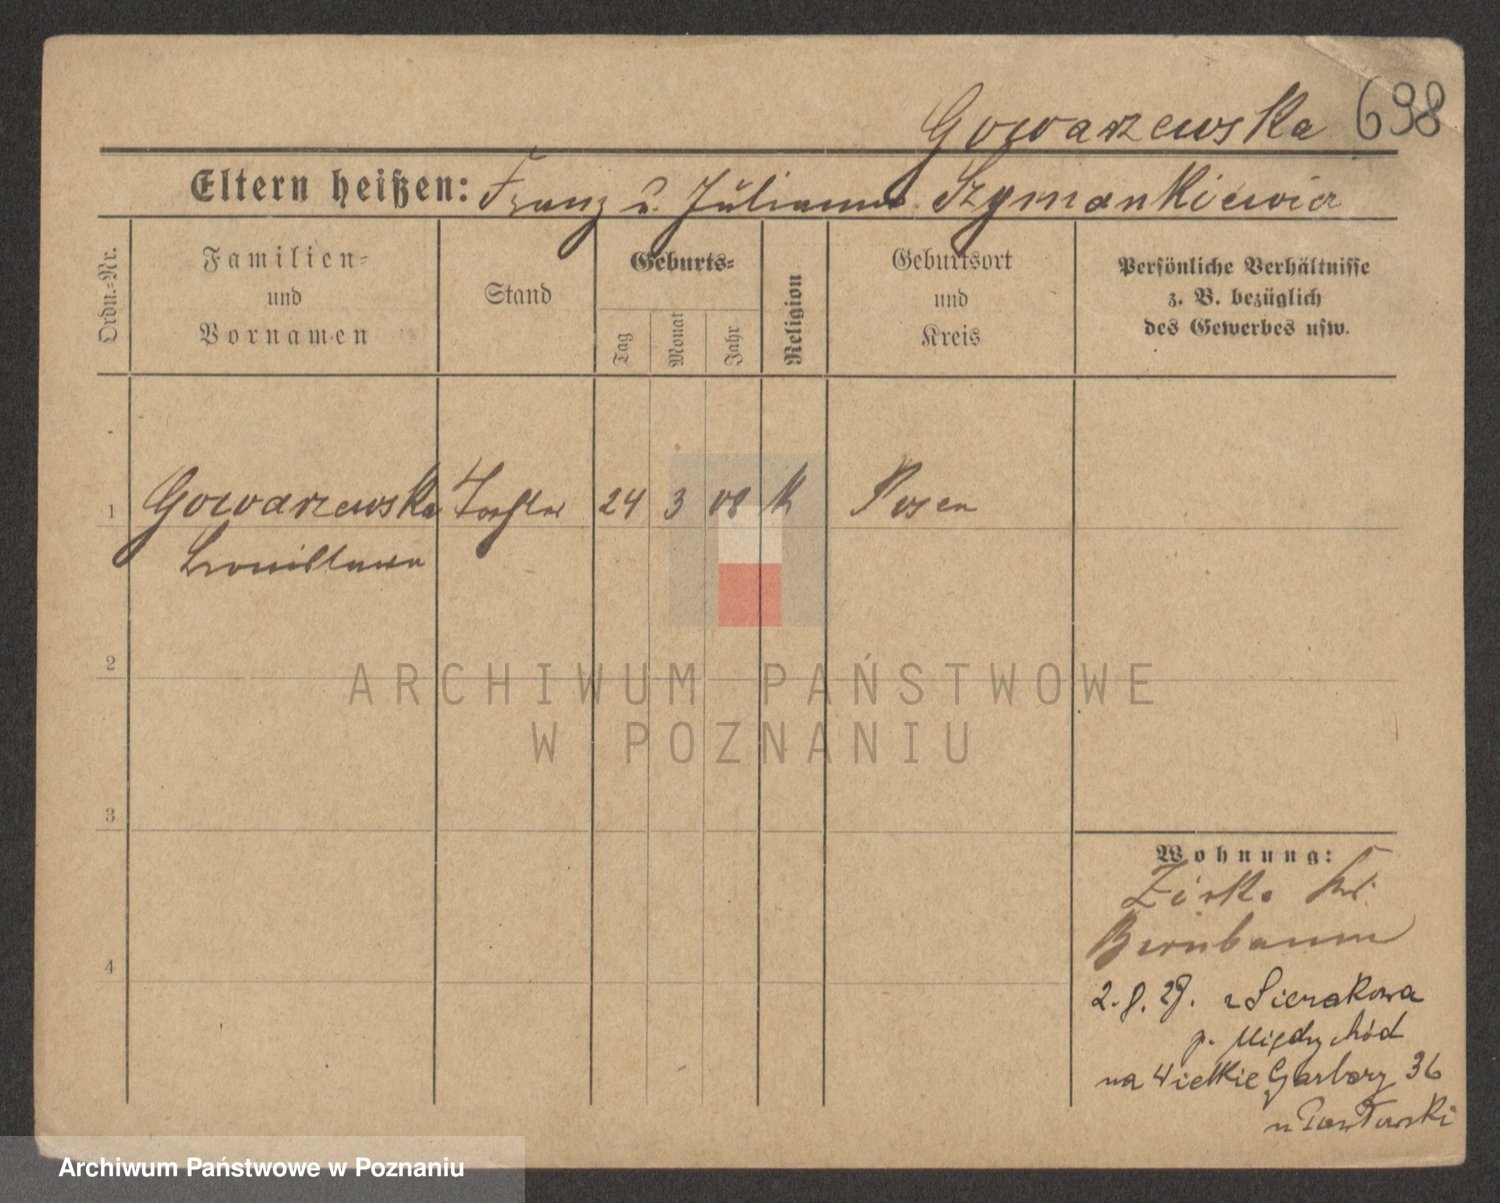 Gowarzewska 698
Eltern heißen: Franz u. Julianna Szymankiewicz
Ordn.-Nr.
Familien-
und
Vornamen
Stand
Geburts-
Tag
Monat
Jahr
Religion
Geburtsort
und
Kreis
Persönliche Verhältnisse
z. B. bezüglich
des Gewerbes usw.
1 Gowarzewska Tochter 24 3 08 K Posen
2
3
4
Wohnung:
Zirke Krs.
Birnbaum
z Sierakowa
p. Międzychód
na Wielkie Garbary 36
ARCHIWUM PAŃSTWOWE
W POZNANIU
Archiwum Państwowe w Poznaniu